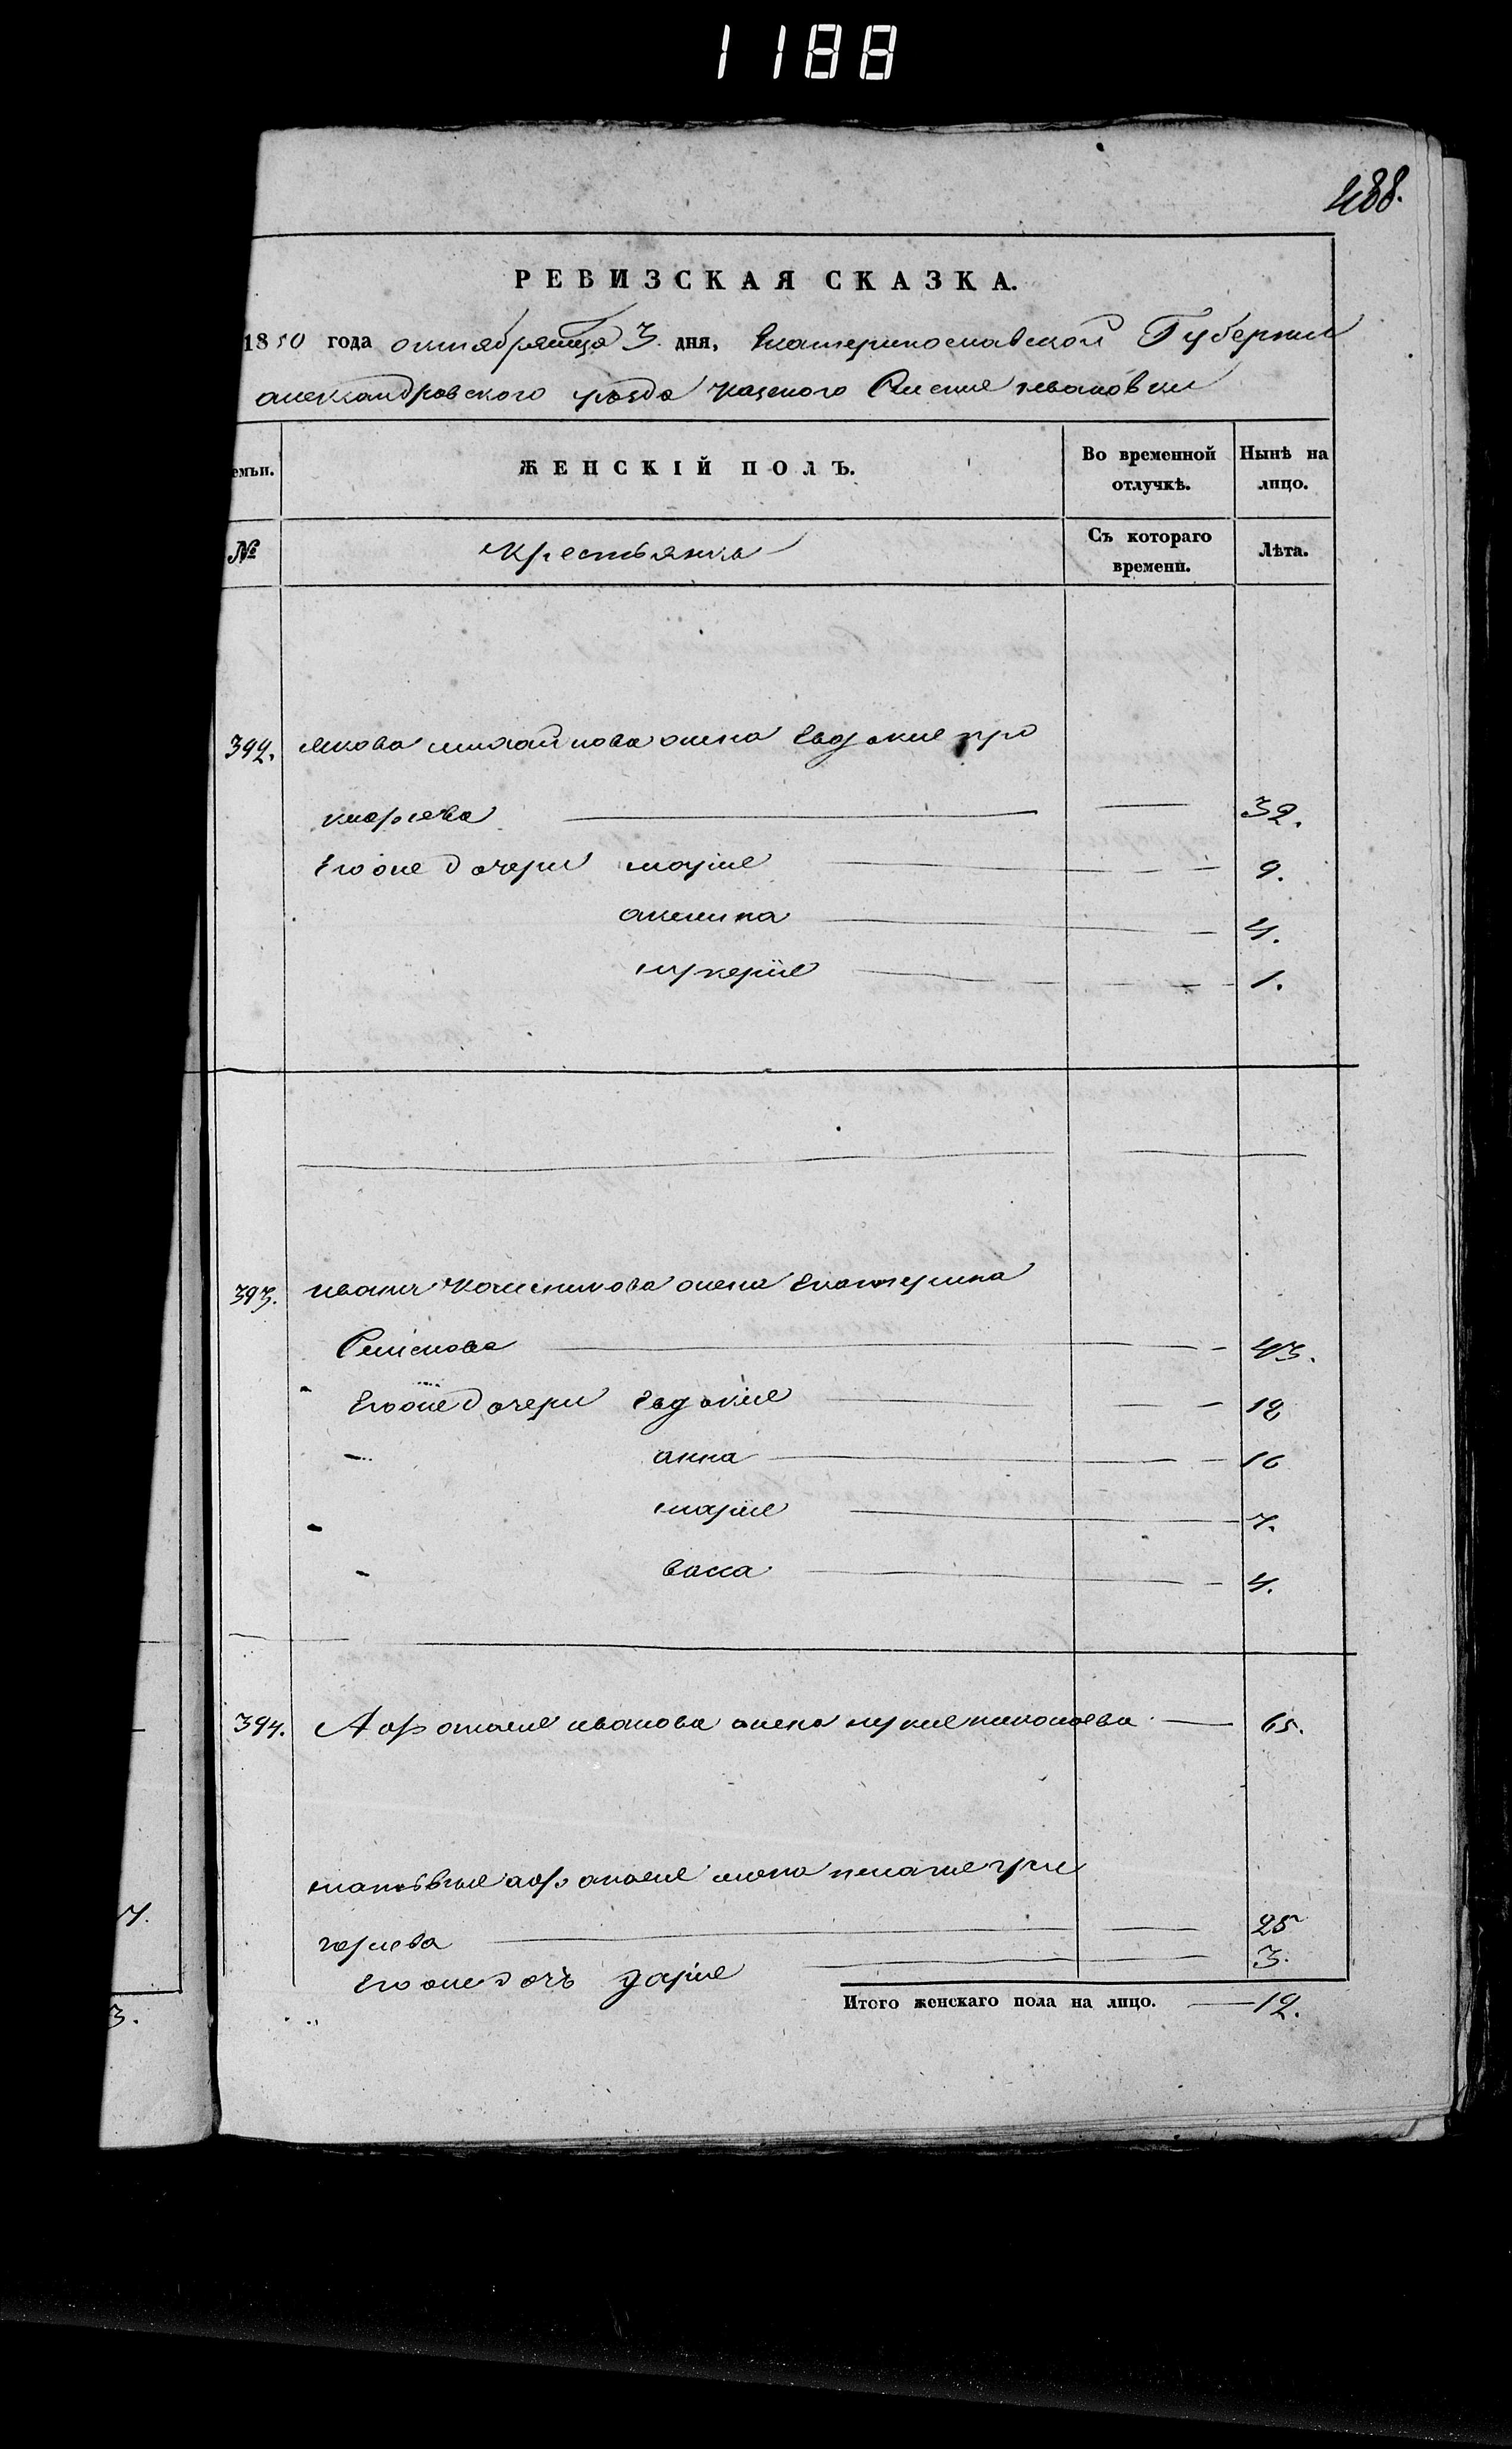 1188
488.
РЕВИЗСКАЯ СКАЗКА.
1850 года октября месяца 3. дня, Екатеринославской Губернии
александровского уезда казеного Селения ивановки
емьи.
ЖЕНСКІЙ ПОЛЪ.
Во временной отлучкѣ.
Нынѣ на лицо.
№
Крестьянка
Съ котораго времени.
Лѣта.
392. якова михайлова жена Евдокия про
кофиева 32.
Его же дочери мария 9.
акилина 4.
лукерия 1.
393. ивана жена Екатерина
Семенова 43.
Его же дочери Евдокия 18
анна 16
мария 7.
васса 4.
394. иванова жена николаева 65.
жена гри
горьева 25
Его же дочь дария 3.
Итого женскаго пола на лицо. 12.
7.
3.